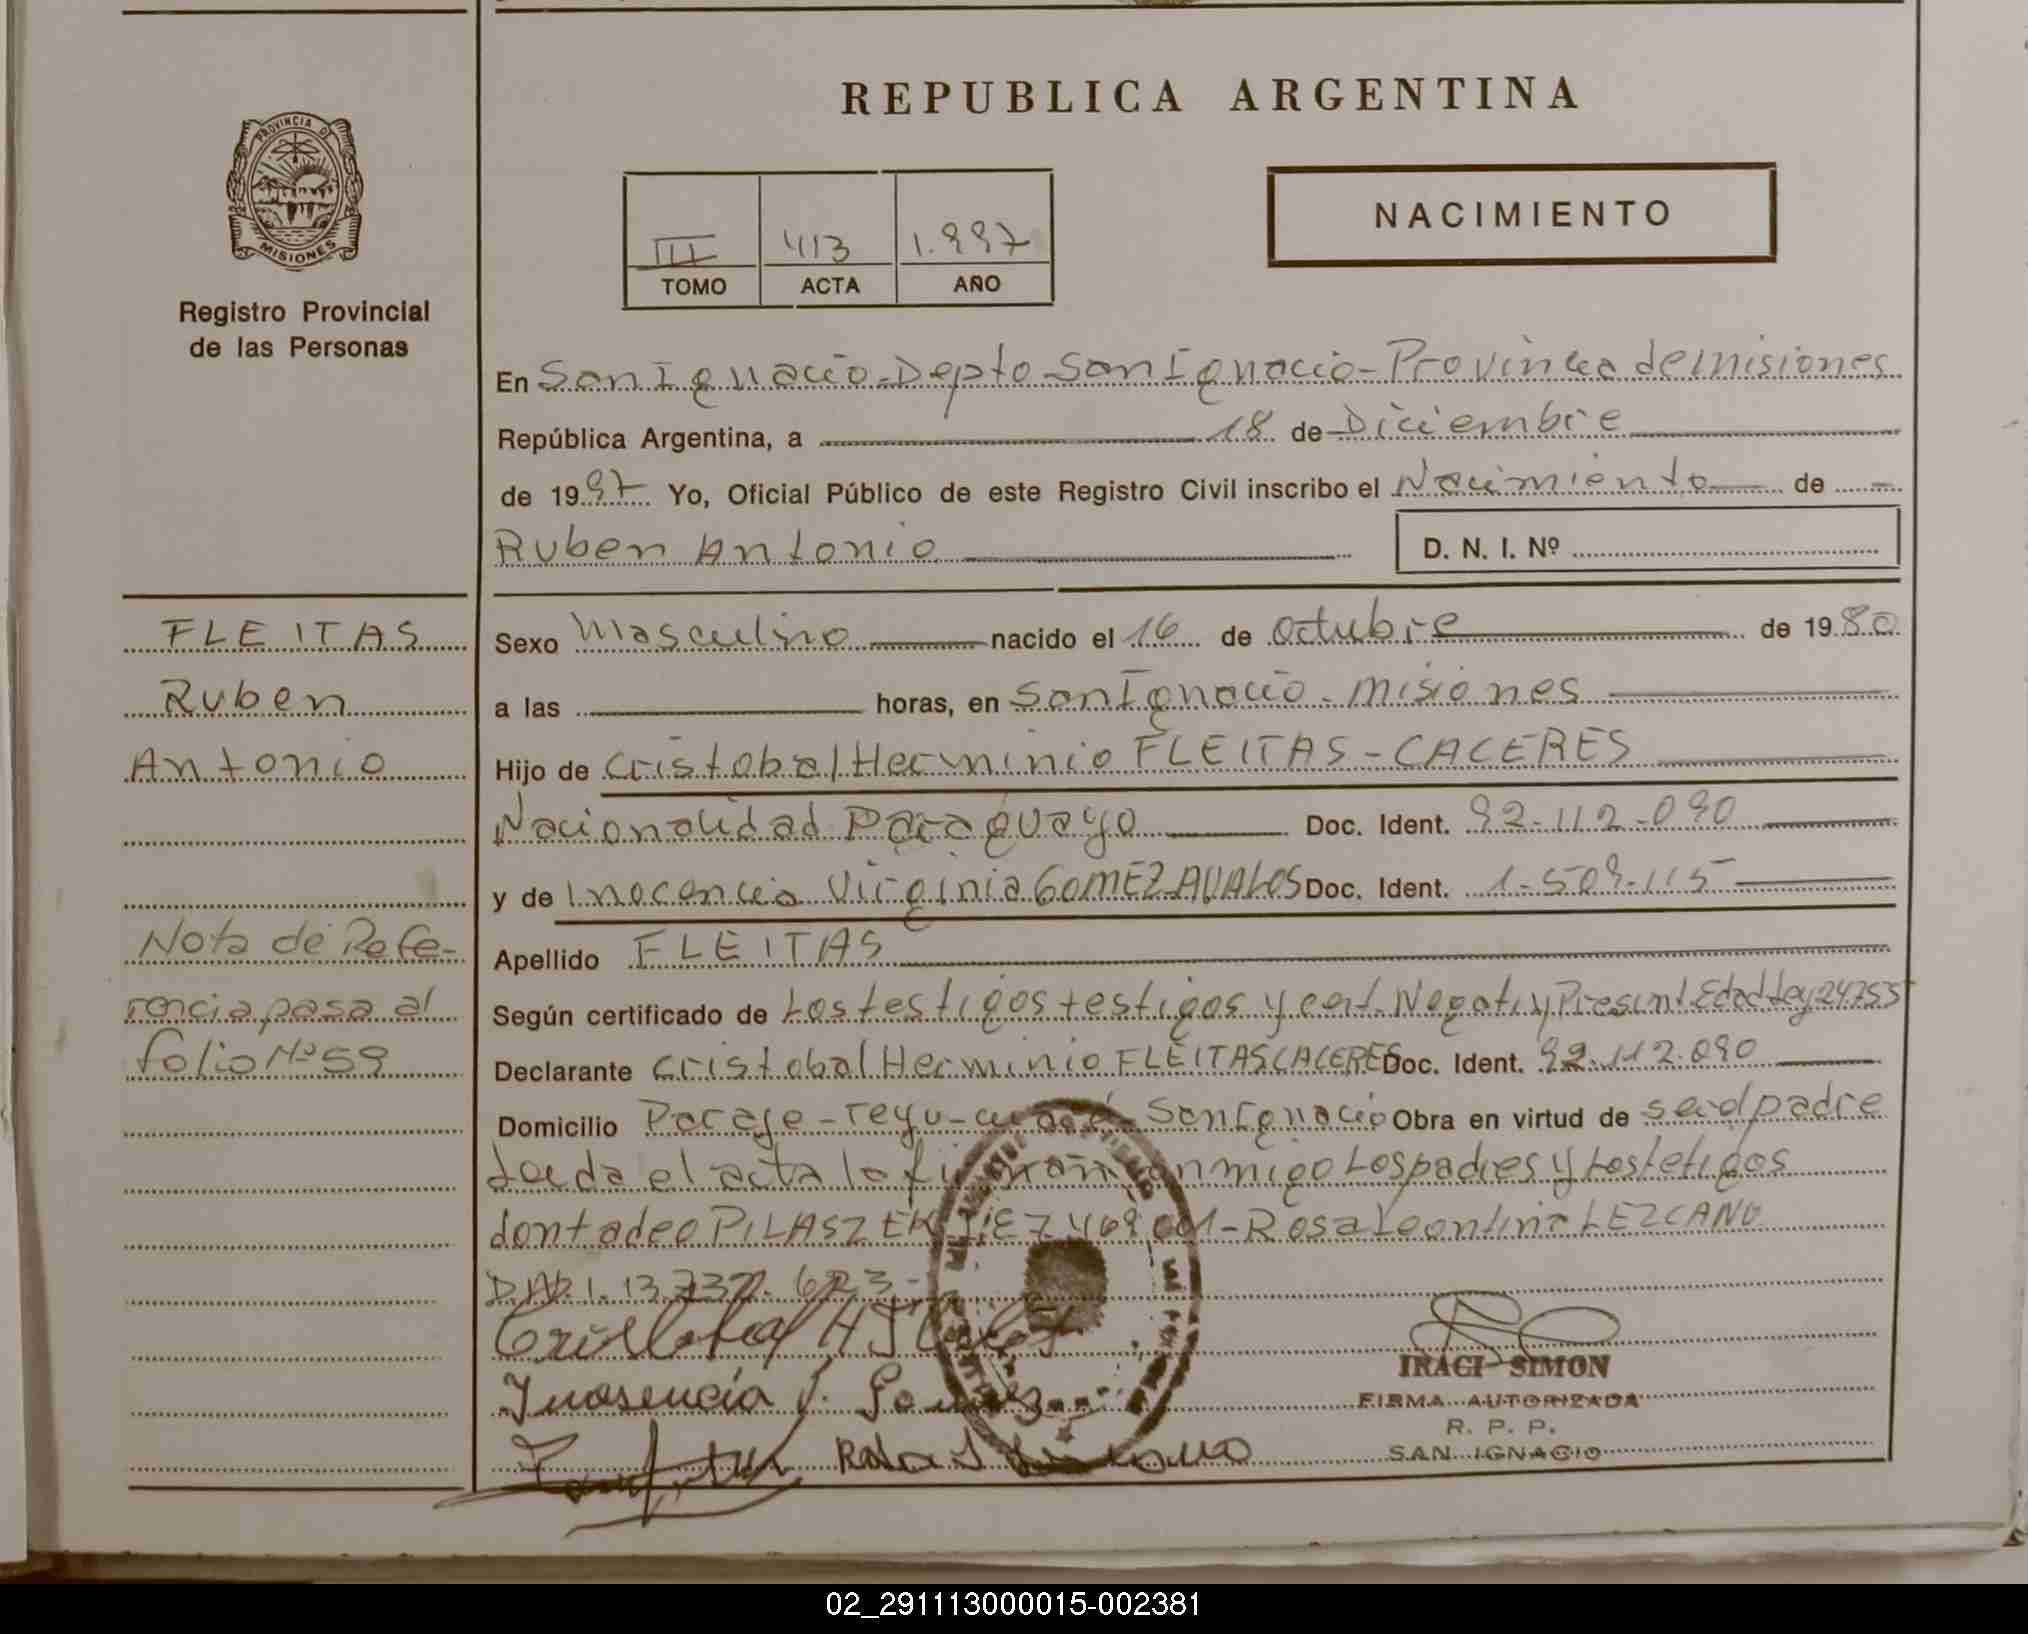 REPUBLICA ARGENTINA
PROVINCIA DE
MISIONES
Registro Provincial
de las Personas
III 413 1.997
TOMO ACTA AÑO
NACIMIENTO
En San Ignacio-Depto San Ignacio-Provincia de misiones
República Argentina, a 18 de Diciembre
de 1997 Yo, Oficial Público de este Registro Civil inscribo el Nacimiento de
Ruben Antonio
D. N. I. Nº
FLEITAS
Ruben
Antonio
Nota de Refe-
rencia pasa al
folio Nº 59
Sexo Masculino nacido el 16 de Octubre de 1980
a las horas, en San Ignacio - misiones
Hijo de Cristobal Herminio FLEITAS-CACERES
Nacionalidad Paraguayo Doc. Ident. 92-112-090
y de Inocencia Virginia GOMEZ AVALOS Doc. Ident. 1-509-115
Apellido FLEITAS
Según certificado de Los testigos testigos y cert. Negati y Presunt Edad Ley 24755
Declarante Cristobal Herminio FLEITAS CACERES Doc. Ident. 92.112.090
Domicilio Paraje-Teyu-cuaré-San Ignacio Obra en virtud de padre
el acta la firman conmigo Los padres y Los tetigos
don tadeo PILASZEK 7469001-Rosa Leontina LEZCANO
D.N.I. 13.732.623-
Inosencia V. Gomez
IRACI SIMON
FIRMA AUTORIZADA
R. P. P.
SAN IGNACIO
02_291113000015-002381